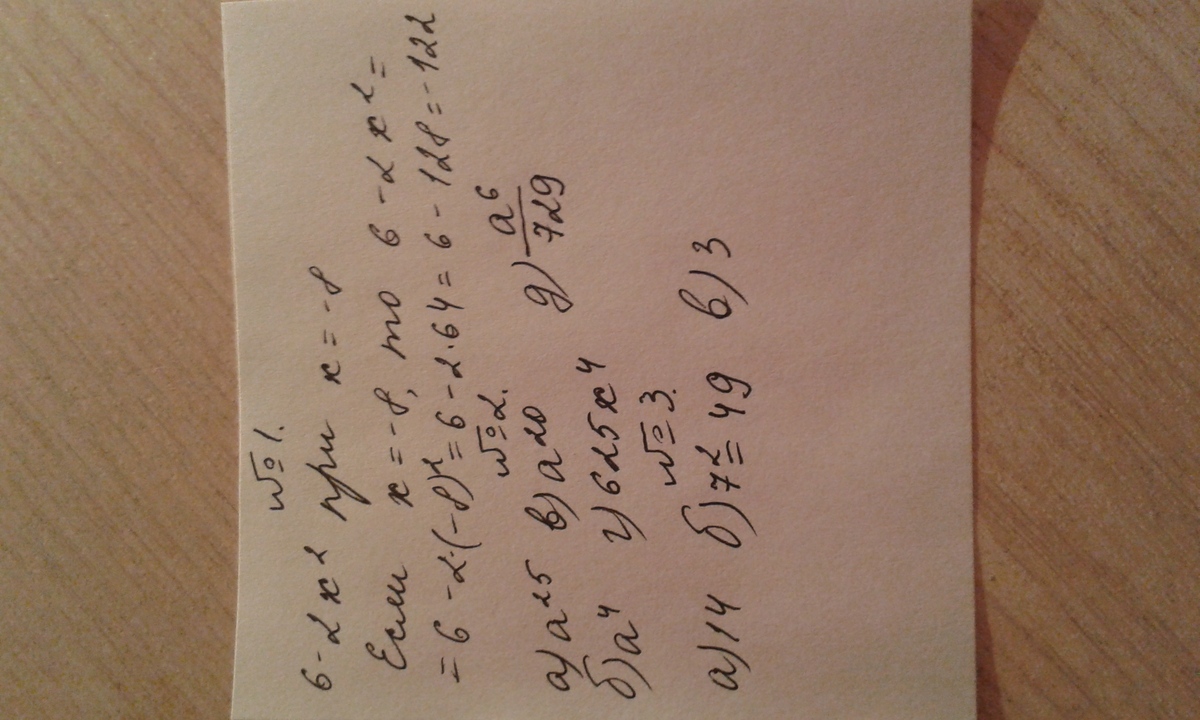 №1.
6-2x² при x=-8
Если x=-8, то 6-2x²=
=6-2·(-8)²=6-2·64=6-128=-122
№2.
а) a²⁵ в) a²⁰ д) a⁶/729
б) a⁴ г) 625x⁴
№3.
а) 14 б) 7²=49 в) 3